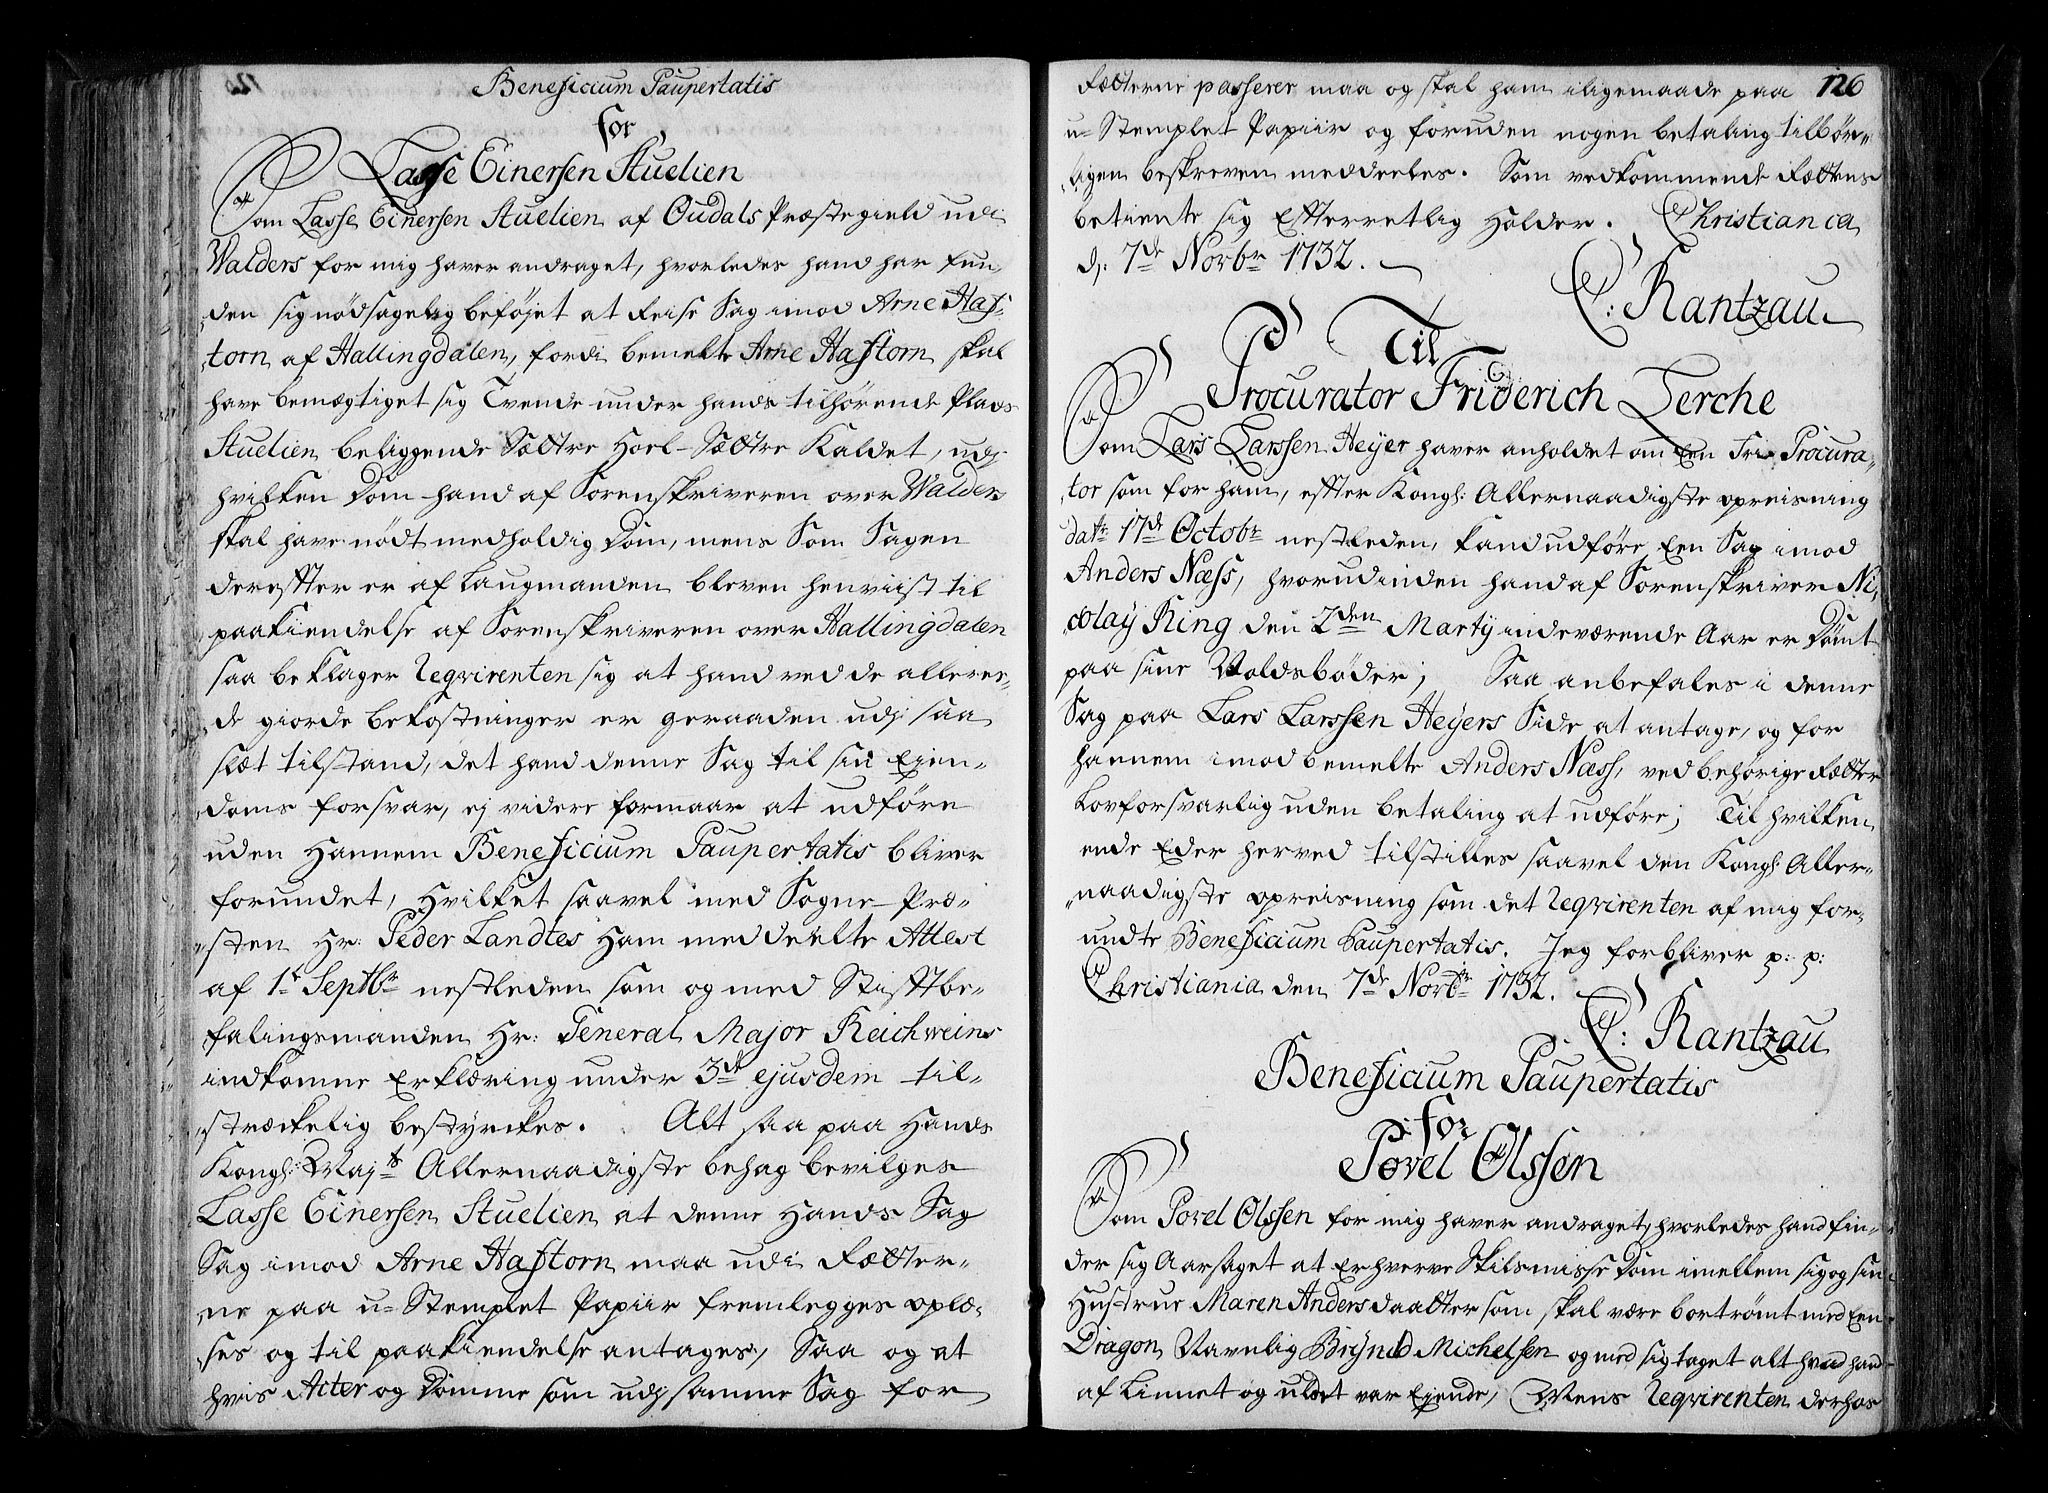 Beneficium Paupertatis
for
Lasse Einersen Stuelien
Som Lasse Einersen Stuelien af Oudals Præstegield udi
Walders for mig haver andraget, hvorledes hand har fun-
den sig nødsagelig beføjet at Reise Sag imod Arne Haf-
torn af Hallingdalen, fordi bemelte Arne Haftorn skal
have bemægtiget sig Tvende under hands tilhørende Plads
Stuelien beliggende Sættre Hoel-Sættre Kaldet, udj
hvilken Dom hand af Sorenskriveren over Walders
skal have nødt medholdig Dom, mens Som Sagen
dereffter er af Laugmanden bleven henviist til
paakiendelse af Sorenskriveren over Hallingdalen
saa beklager Reqvirenten sig at hand ved de allere-
de giorde bekostninger er geraaden udj saa
slæt tilstand, det hand denne Sag til sin Ejen-
doms forsvar, ej videre formaar at udføre
uden Hannem Beneficium Paupertatis bliver
forundet, Hvilket saavel med Sogne-Præ-
sten Hr: Peder Landtes Ham meddeelte Attest
af 1t Septbr nestleden som og med Stifftbe-
falingsmanden Hr: General Major Reichweins
indkomne Erklæring under 3de ejusdem til-
stræckelig bestyrckes. Alt saa paa Hands
Kongl: Majts Allernaadigste behag bevilges
Lasse Einersen Stuelien at denne Hands Sag
Sag imod Arne Haftorn maa udi Rætter-
ne paa u-Stemplet Papiir fremlegges oplæ-
ses og til paakiendelse antages, Saa og at
hvis Acter og Domme som udj samme Sag for
126
Rætterne passerer maa og skal ham iligemaade paa
u-Stemplet Papiir og foruden nogen betaling tilbør-
ligen beskreven meddeeles. Som vedkommende Rættens
betiente sig Efterretlig Holder. Christianica
d: 7de Novbr 1732.
C: Rantzau
Til
Procurator Friderich Lerche
Som Lars Larssen Heyer haver anholdet om Een Fri Procura-
tor som for ham, effter Kongl: Allernaadigste opreisning
datr: 17de Octobr nestleden, kand udføre Een Sag imod
Anders Næss, hvorudinden hand af Sorenskriver Ni-
colay Ring den 2den Martij indeværende Aar er Dømt
paa sine Voldsbøder; Saa anbefales i denne
Sag paa Lars Larssen Heyers Side at antage, og for
hannem imod bemelte Anders Næss, ved behørige Rætter
Lovforsvarlig uden betaling at udføre; Til hvilken
ende Eder herved tilstilles saavel den Kongl: Aller-
naadigste opreisning som det Reqvirenten af mig for-
undte Beneficium Paupertatis. Jeg forbliver p: p:
Christiania den 7de Novbr 1732.
C: Rantzau
Beneficium Paupertatis
for
Povel Olssen
Som Povel Olssen for mig haver andraget, hvorledes hand fin-
der sig Aarsaget at Erhverve Skilsmisse Dom imellem sig og sin
Hustrue Maren Andersdaatter som skal være bortrømt med Een
Dragon Navnlig Brynild Michelsen og med sig taget alt hvad hand
af Linnet og uldet var Ejende, Mens Reqvirenten derhos